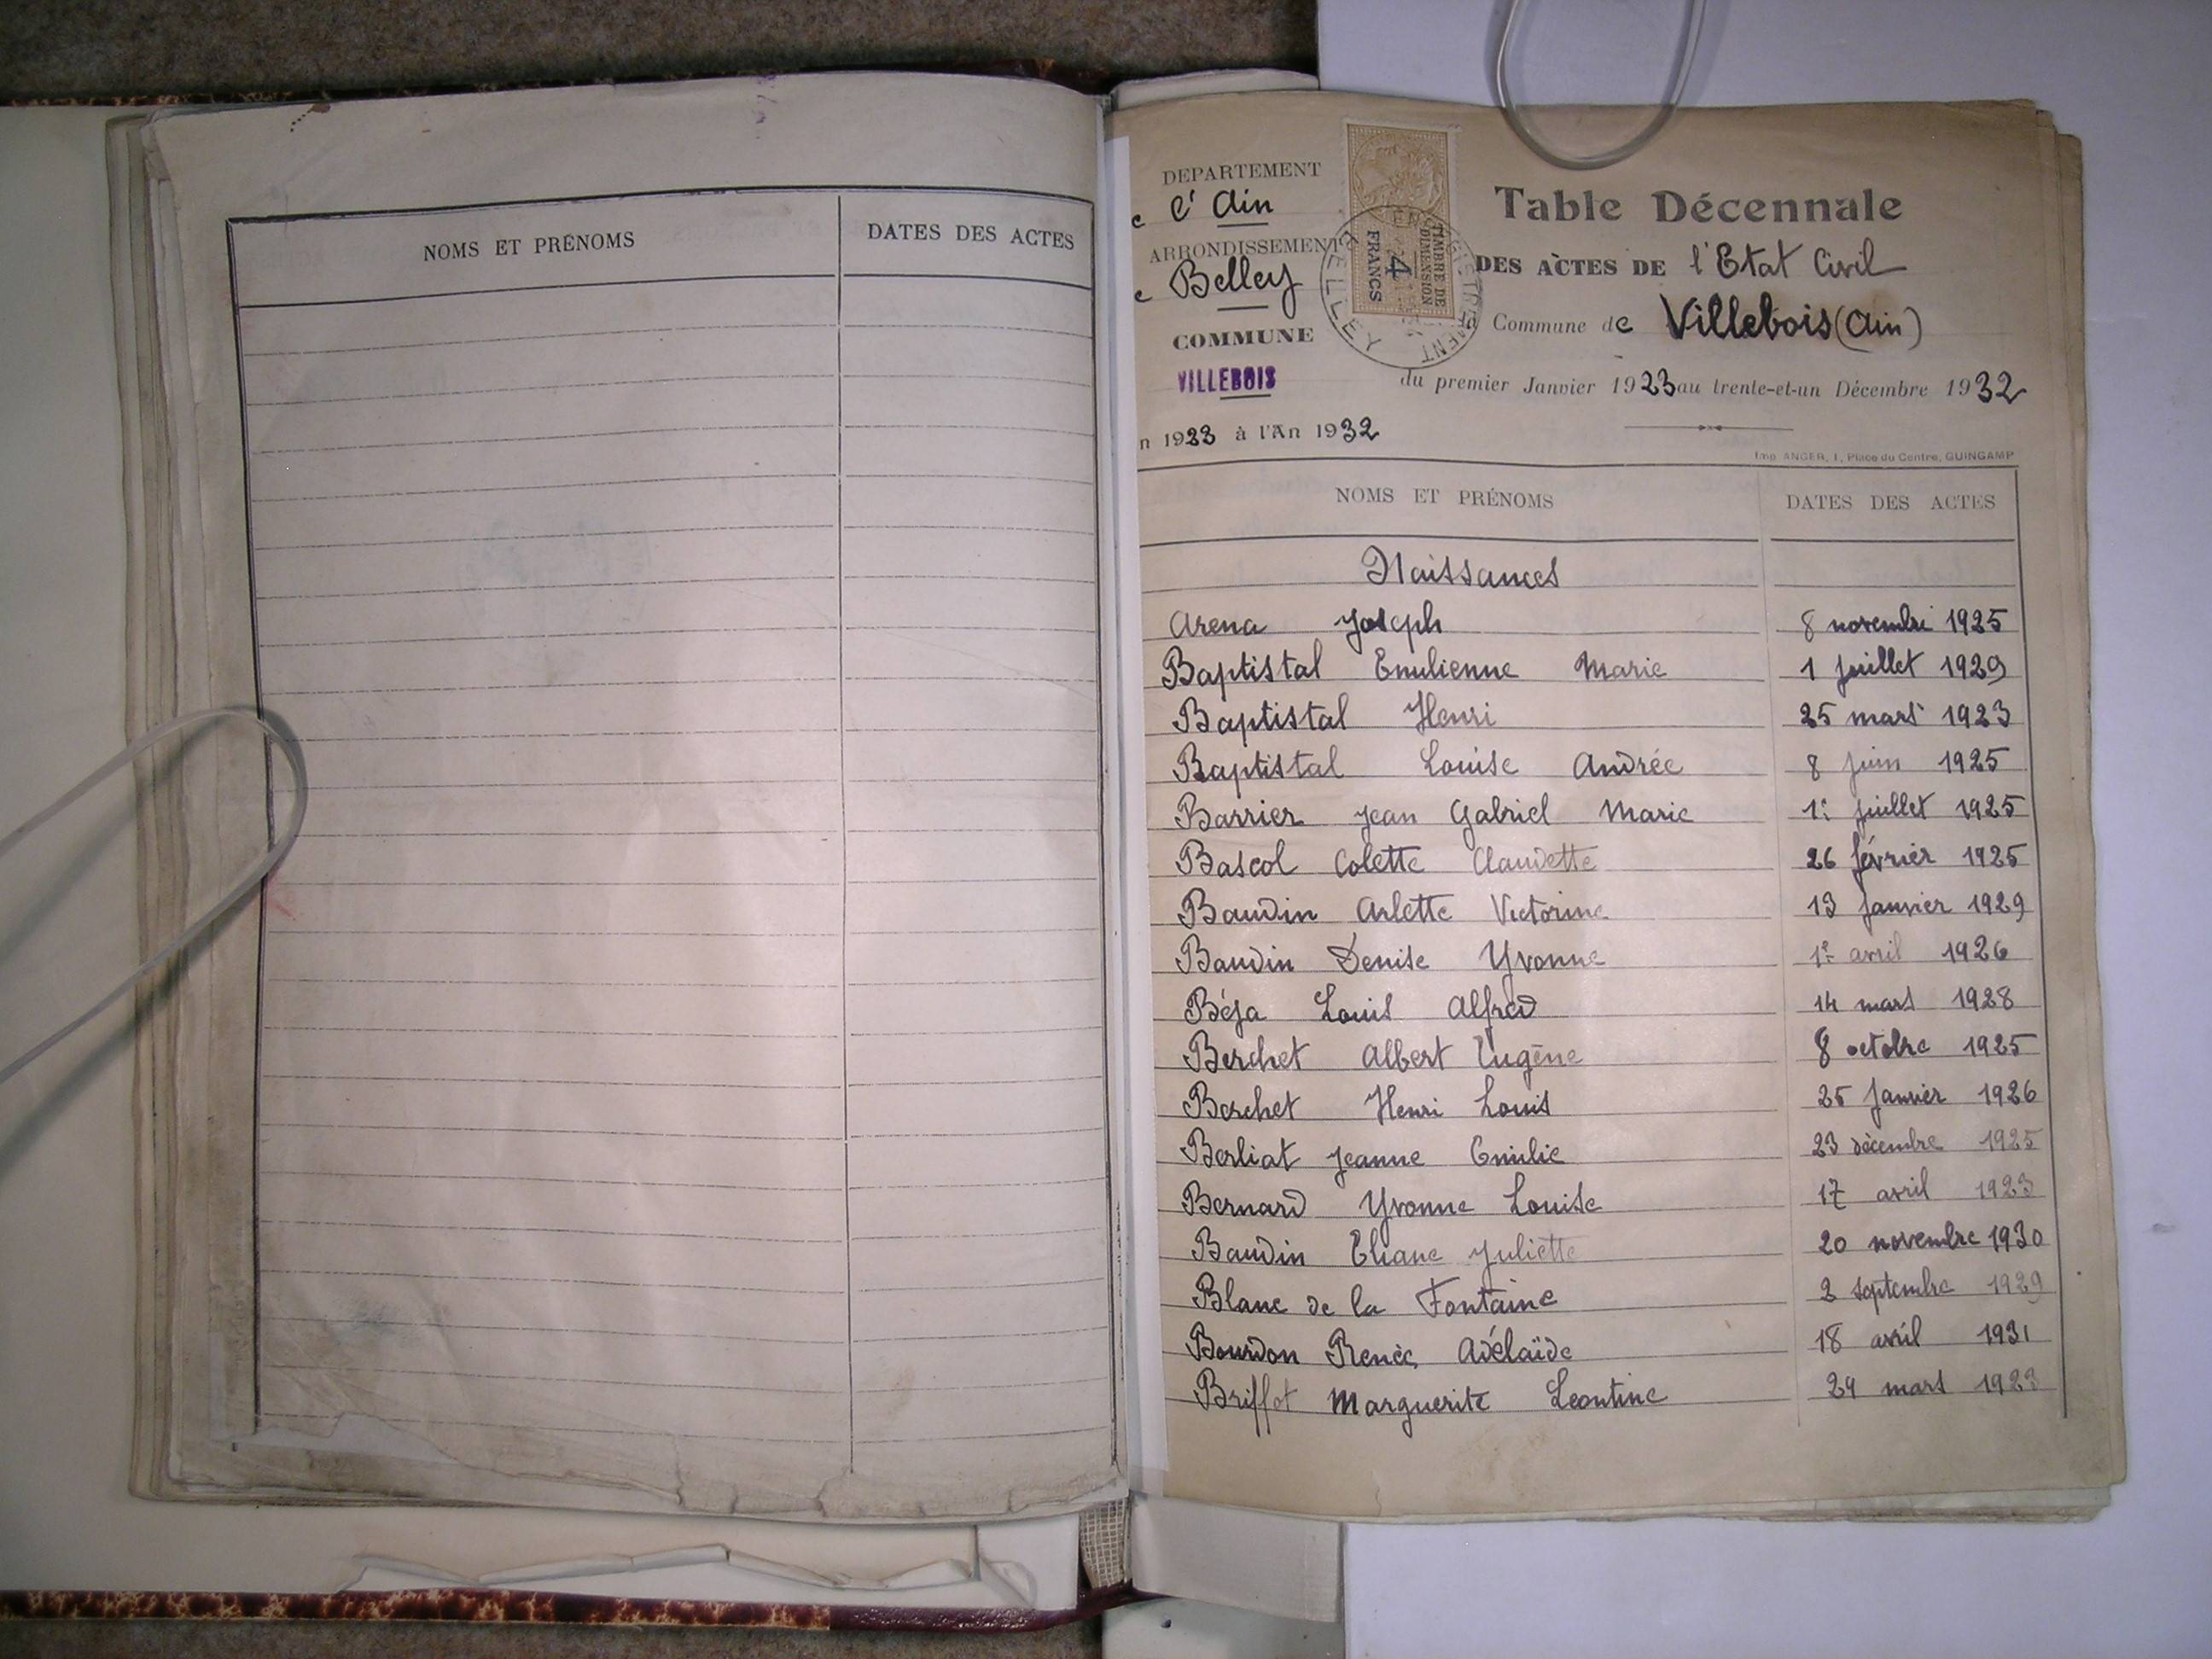 NOMS ET PRÉNOMS DATES DES ACTES
DEPARTEMENT
e l'Ain
ARRONDISSEMENT
e Belley
COMMUNE
VILLEBOIS
n 1923 à l'An 1932
TIMBRE DE
DIMENSION
4
FRANCS
BELLEY
Table Décennale
DES ACTES DE l'Etat Civil
Commune de Villebois (Ain)
du premier Janvier 1923 au trente-et-un Décembre 1932
Imp. ANGER, 1, Place du Centre, GUINGAMP
NOMS ET PRÉNOMS DATES DES ACTES
Naissances
Arena Joseph 8 novembre 1925
Baptistal Emilienne Marie 1 juillet 1929
Baptistal Henri 25 mars 1923
Baptistal Louise Andrée 8 juin 1925
Barrier Jean Gabriel Marie 1er juillet 1925
Bascol Colette Claudette 26 février 1925
Baudin Arlette Victorine 13 janvier 1929
Baudin Denise Yvonne 1er avril 1926
Béja Louis Alfred 14 mars 1928
Berchet Albert Eugène 8 octobre 1925
Berchet Henri Louis 25 janvier 1926
Berliat Jeanne Emilie 23 décembre 1925
Bernard Yvonne Louise 17 avril 1923
Baudin Eliane Juliette 20 novembre 1930
Blanc de la Fontaine 2 septembre 1929
Bourdon Renée Adélaïde 18 avril 1931
Briffot Marguerite Leontine 29 mars 1923